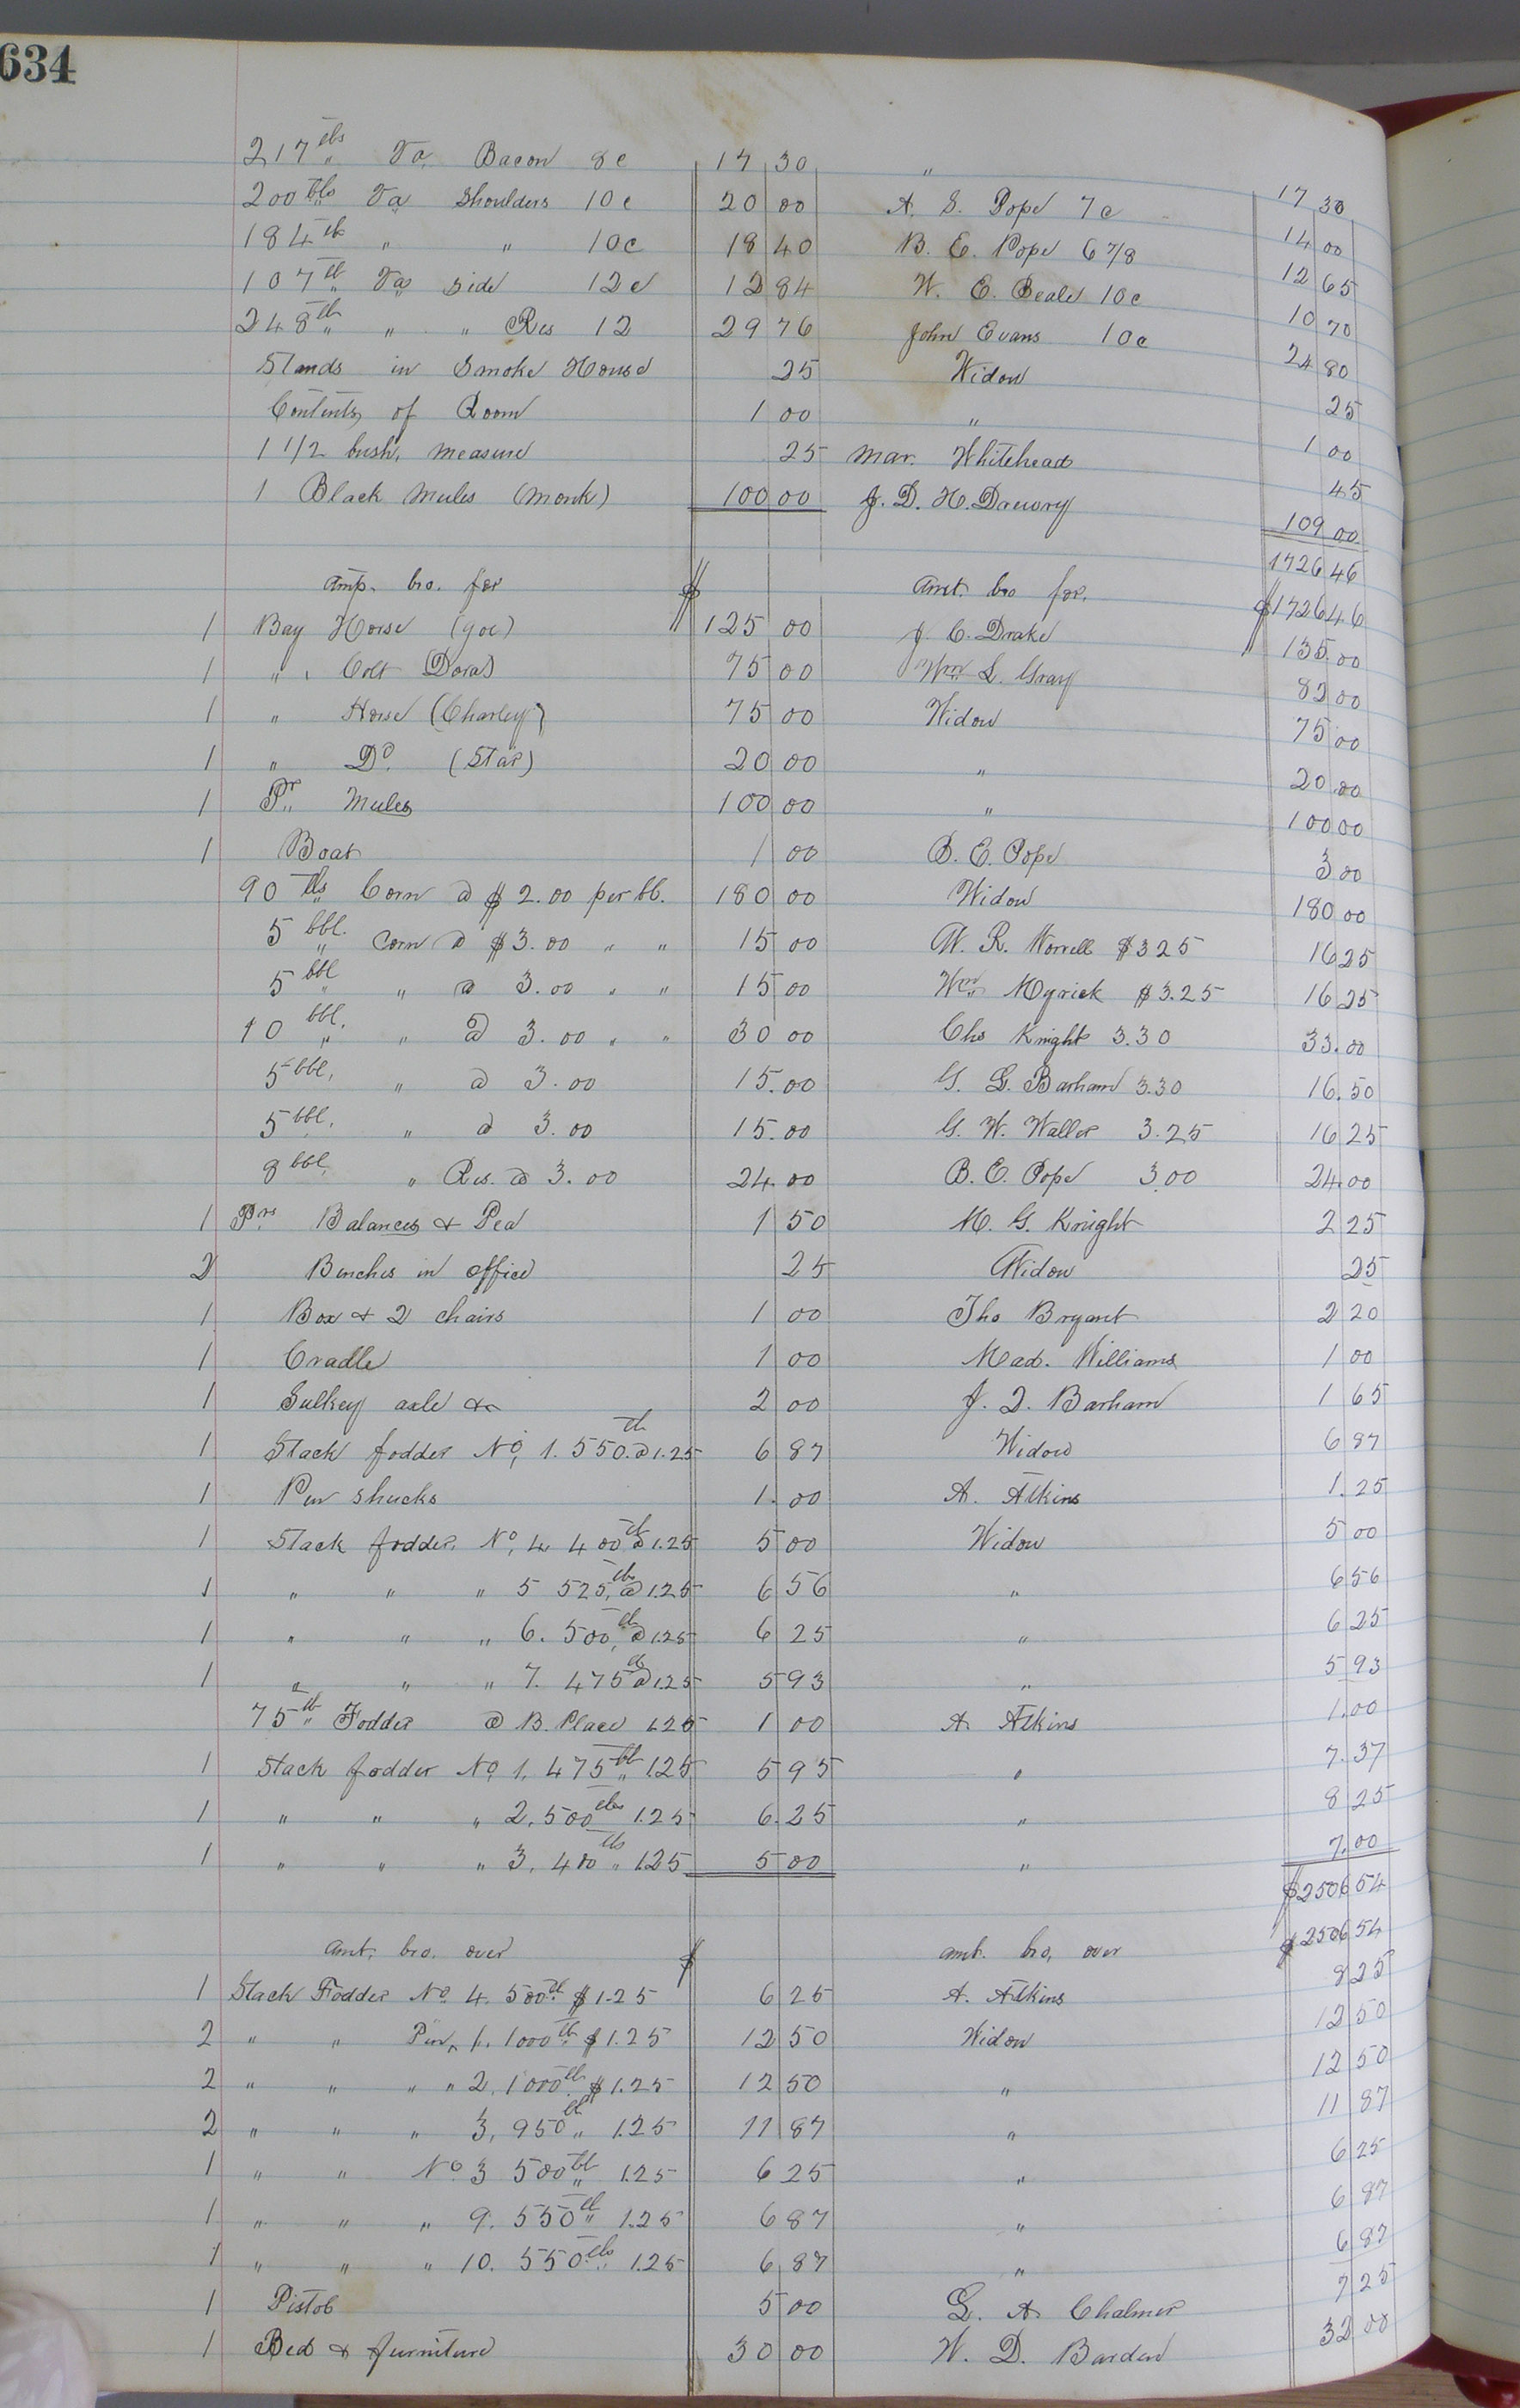 634
217 lbs Va. Bacon 8c 17 30 " 17 30
200 lbs Va Shoulders 10c 20 00 A. S. Pope 7c 14 00
184 lb " " 10c 18 40 B. E. Pope 6 7/8 12 65
107 lb Va side 12c 12 84 W. E. Beale 10c 10 70
248 lb " " Res 12 29 76 John Evans 10c 24 80
Stands in Smoke House 25 Widow 25
Contents of Room 1 00 " 1 00
1 1/2 bush. measure 25 Mar. Whitehead 45
1 Black Mules (Monk) 100 00 J. D. H. Drewry 109 00
1726 46
Amt. bro. for $ Amt. bro for. $1726 46
1 Bay Horse (Joe) 125 00 J. C. Drake 135.00
1 " Colt (Dora) 75 00 Wm L. Gray 82 00
1 " Horse (Charley) 75 00 Widow 75 00
1 " Do. (Star) 20 00 " 20 00
1 Pr. Mules 100 00 " 100 00
1 Boat 1 00 B. E. Pope 3 00
90 bls Corn @ $2.00 per bb. 180 00 Widow 180 00
5 bbl. Corn @ $3.00 " " 15 00 W. R. Worrell $3 25 16 25
5 bbl " @ 3.00 " " 15 00 Wm Myrick $3.25 16 25
10 bbl. " @ 3.00 " " 30 00 Chs Knight 3.30 33.00
5 bbl. " @ 3.00 15.00 G. L. Barham 3.30 16.50
5 bbl. " @ 3.00 15.00 G. W. Waller 3.25 16 25
8 bbl. " Res. @ 3.00 24.00 B. E. Pope 3.00 24.00
1 Prs Balances & Pea 1 50 M. G. Knight 2 25
2 Benches in office 25 Widow 25
1 Box & 2 chairs 1 00 Tho Bryant 2 20
1 Cradle 1 00 Mad. Williams 1 00
1 Sulkey axle &c 2 00 J. T. Barham 1 65
1 Stack fodder No. 1. 550. lb @ 1.25 6 87 Widow 6 87
1 Pen shucks 1.00 A. Atkins 1.25
1 Stack fodder. No. 4 400 lb @ 1.25 5 00 Widow 5 00
1 " " " 5 525 lbs @ 1.25 6 56 " 6 56
1 " " " 6. 500 lb @ 1.25 6 25 " 6 25
1 " " " 7. 475 lb @ 1.25 5 93 " 5 93
75 lb Fodder @ B. Place 1.25 1 00 A. Atkins 1.00
1 Stack fodder No. 1, 475 lb " 1.25 5 95 " 7.37
1 " " " 2, 500 lbs 1.25 6.25 " 8 25
1 " " " 3, 400 lbs " 1.25 5 00 " 7.00
$2506 54
Amt. bro. over $ Amt. bro. over $2506 54
1 Stack Fodder No 4. 500 lb $1.25 6 25 A. Atkins 8 25
2 " " Pen, 1. 1000 lb $1.25 12 50 Widow 12 50
2 " " " " 2, 1000 lb $1.25 12 50 " 12 50
2 " " " 3, 950 lb " 1.25 11 87 " 11 87
1 " " No 3 500 lb " 1.25 6 25 " 6 25
1 " " " 9. 550 lb " 1.25 6 87 " 6 87
1 " " " 10. 550 lbs " 1.25 6 87 " 6 87
1 Pistol 5 00 L. A. Chalmer 7 25
1 Bed & furniture 30 00 W. D. Barden 32 00